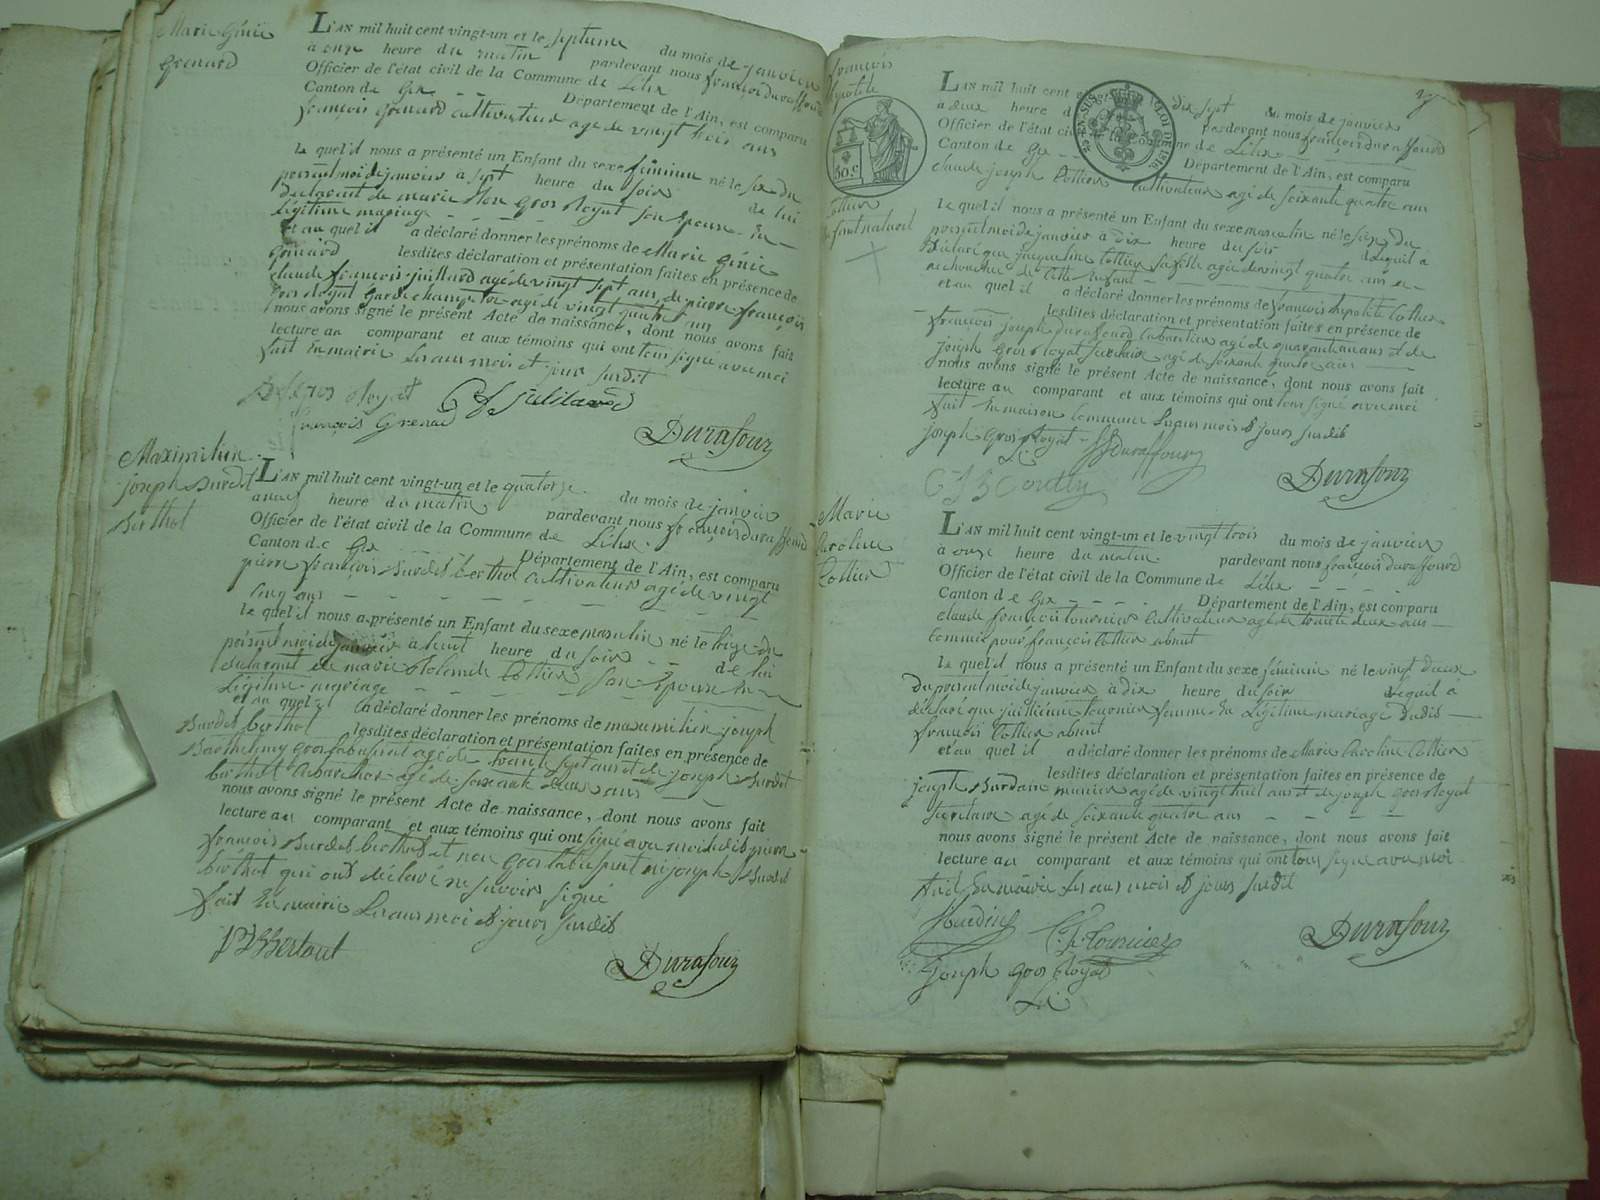 Marie Génie
Grenard
L'AN mil huit cent vingt-un et le septieme du mois de janvier
à onze heure du matin pardevant nous françois durafford
Officier de l'état civil de la Commune de Lélex
Canton de Gex Département de l'Ain, est comparu
françois Grenard cultivateur agé de vingt trois ans
le quel il nous a présenté un Enfant du sexe féminin né le six du
présent moi de janvier à sept heure du soir de lui
déclarent de marie gros Royat son Epouse En
Légitime mariage
et au quel il a déclaré donner les prénoms de Marie Génie
Grenard lesdites déclaration et présentation faites en présence de
claude françois juillard agé de vingt sept ans, de pierre françois
gros Royat garde champetre agé de vingt quatre ans
nous avons signé le présent Acte de naissance, dont nous avons fait
lecture au comparant et aux témoins qui ont tous signé avec moi
fait En mairie Les ans moi et jour surdit
françois Grenard
Durafour
Maximilien
joseph Burdet
Berthot
L'AN mil huit cent vingt-un et le quatorze du mois de janvier
heure du matin pardevant nous françois durafford
Officier de l'état civil de la Commune de Lélex
Canton de Gex Département de l'Ain, est comparu
pierre françois Burdet berthot cultivateur agé de vingt
cinq ans
le quel il nous a présenté un Enfant du sexe masculin né le treize du
présent moi de janvier à huit heure du soir de lui
déclarent de marie Cottier son Epouse En
Légitime mariage
et au quel il a déclaré donner les prénoms de maxumilien joseph
Burdet berthot lesdites déclaration et présentation faites en présence de
Barthelemy grosfabupint agé de trente sept ans et de joseph Burdet
berthot agé de soixante deux ans
nous avons signé le présent Acte de naissance, dont nous avons fait
lecture au comparant et aux témoins qui ont signé avec moi ledit pierre
françois Burdet berthot et non ni joseph Burdet
berthot qui ont déclaré ne savoir signé
fait En mairie Les ans moi et jour surdit
Durafour
françois
hypolite
50 c.
Cottier
Enfant naturel
L'AN mil huit cent dix sept du mois de janvier
à deux heure pardevant nous françois durafford
Officier de l'état civil de la Commune de Lélex
Canton de Gex Département de l'Ain, est comparu
claude joseph Cottier cultivateur agé de soixante quatre ans
le quel il nous a présenté un Enfant du sexe masculin né le seize du
présent moi de janvier à dix heure du soir lequel a
Déclaré que jacqueline Cottier sa fille agée de vingt quatre ans
accouchée de cette Enfant
et au quel il a déclaré donner les prénoms de françois hypolite Cottier
lesdites déclaration et présentation faites en présence de
françois joseph durafourd agé de quarante un ans et de
joseph gros Royat agé de soixante quatre ans
nous avons signé le présent Acte de naissance, dont nous avons fait
lecture au comparant et aux témoins qui ont tous signé avec moi
fait En maison Commune Les ans mois et jours surdit
joseph gros Royat
Durafour
Marie
Caroline
Cottier
L'AN mil huit cent vingt-un et le vingt trois du mois de janvier
à onze heure du matin pardevant nous françois durafford
Officier de l'état civil de la Commune de Lélex
Canton de Gex Département de l'Ain, est comparu
claude françois tournier cultivateur agé de trente deux ans
commis pour françois Cottier absent
le quel il nous a présenté un Enfant du sexe féminin né le vingt deux
Du présent moi de janvier à dix heure du soir lequel a
déclaré que tournier femme En Légitime mariage Dudit
françois Cottier absent
et au quel il a déclaré donner les prénoms de Marie Caroline Cottier
lesdites déclaration et présentation faites en présence de
joseph Burdain munier agé de vingt huit ans et de joseph gros Royat
agé de soixante quatre ans
nous avons signé le présent Acte de naissance, dont nous avons fait
lecture au comparant et aux témoins qui ont tous signé avec moi
fait En mairie Les ans mois et jours surdit
C. f. tournier
Durafour
Joseph gros Royat